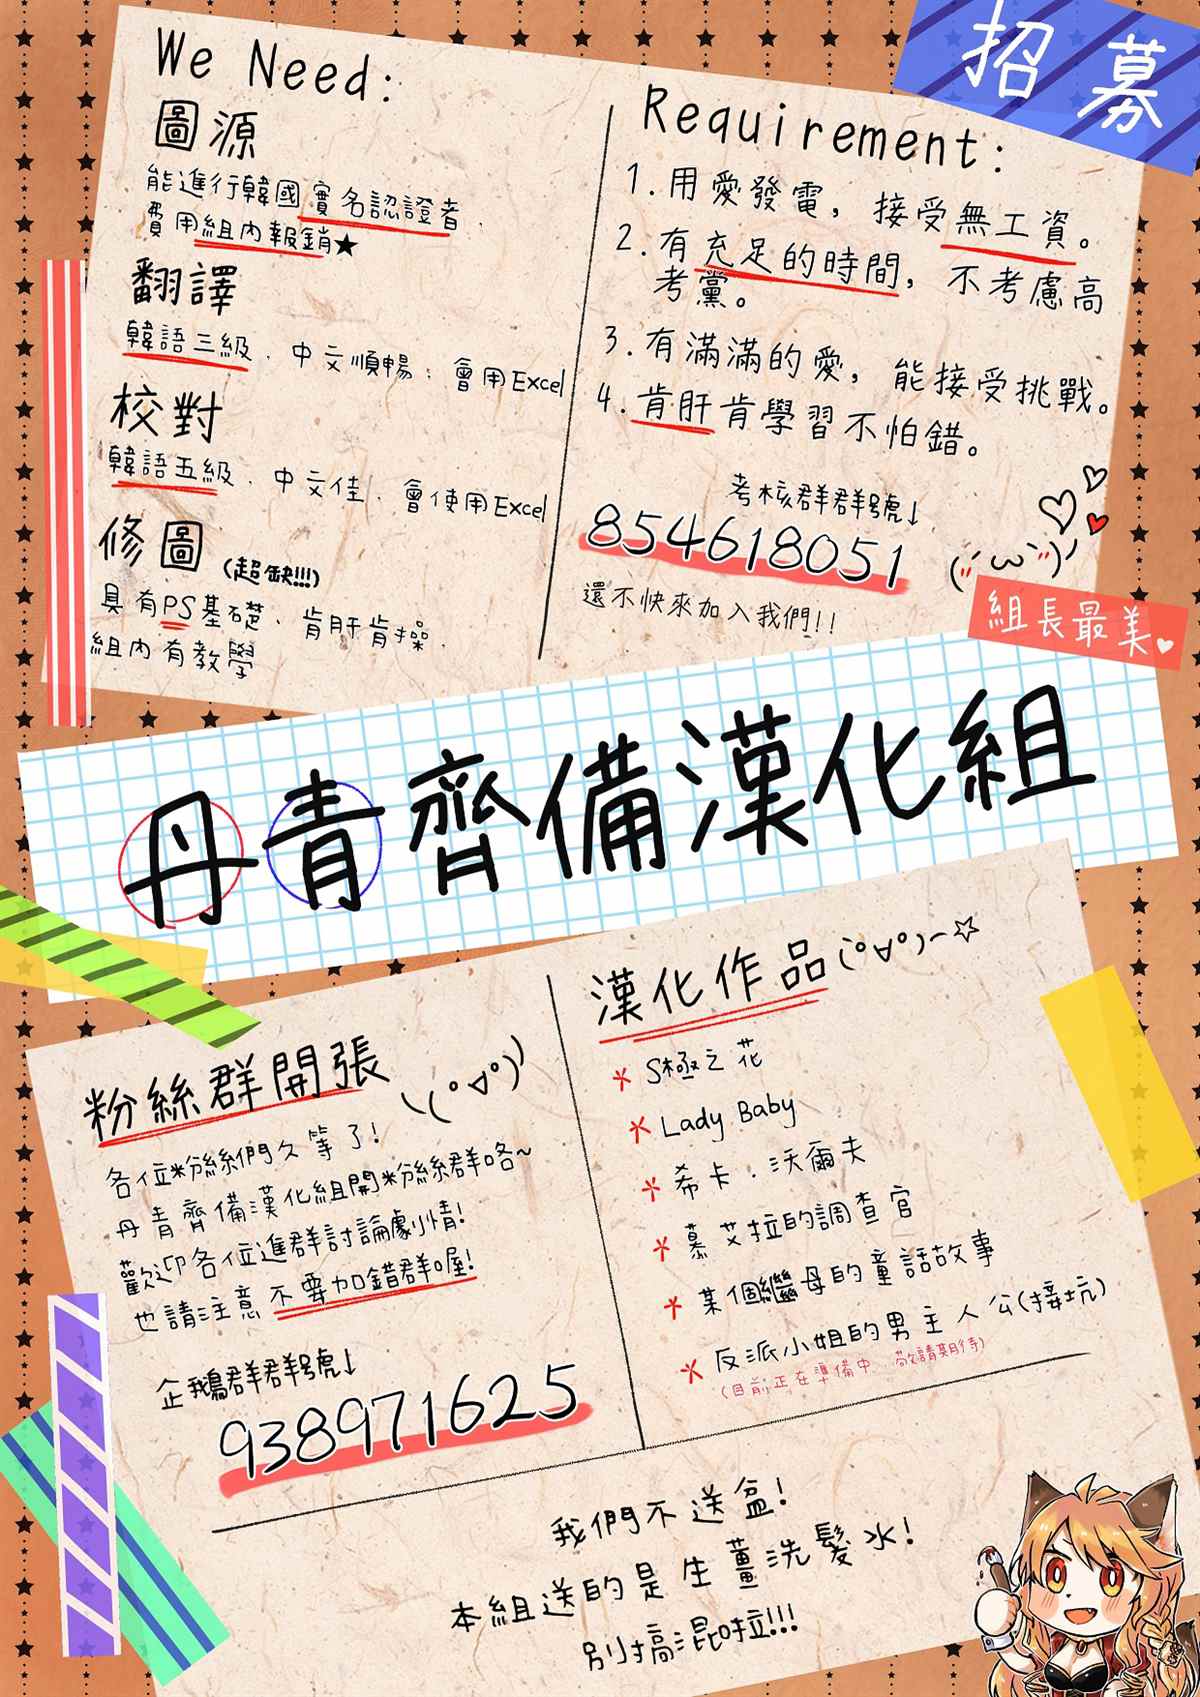 招募
We Need:
圖源
能進行韓國實名認證者.
費用組內報銷★
翻譯
韓語三級. 中文順暢. 會用Excel
校對
韓語五級. 中文佳. 會使用Excel
修圖(超缺!!!)
具有PS基礎. 肯肝肯操.
組內有教學
Requirement:
1.用愛發電, 接受無工資。
2.有充足的時間, 不考慮高
考黨。
3.有滿滿的愛, 能接受挑戰。
4.肯肝肯學習不怕錯。
考核群群號↓
854618051
還不快來加入我們!!
組長最美
丹青齊備漢化組
粉絲群開張
各位粉絲們久等了!
丹青齊備漢化組開粉絲群咯~
歡迎各位進群討論劇情!
也請注意不要加錯群喔!
企鵝群群號↓
938971625
漢化作品
S極之花
Lady Baby
希卡.沃爾夫
慕艾拉的調查官
某個繼母的童話故事
反派小姐的男主人公(接坑)
(目前正在準備中. 敬請期待)
我們不送盒!
本組送的是生薑洗髮水!
別搞混啦!!!